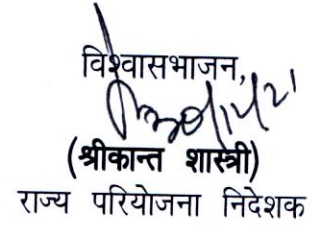 विश्वासभाजन,
(श्रीकान्त शास्त्री)
राज्य परियोजना निदेशक